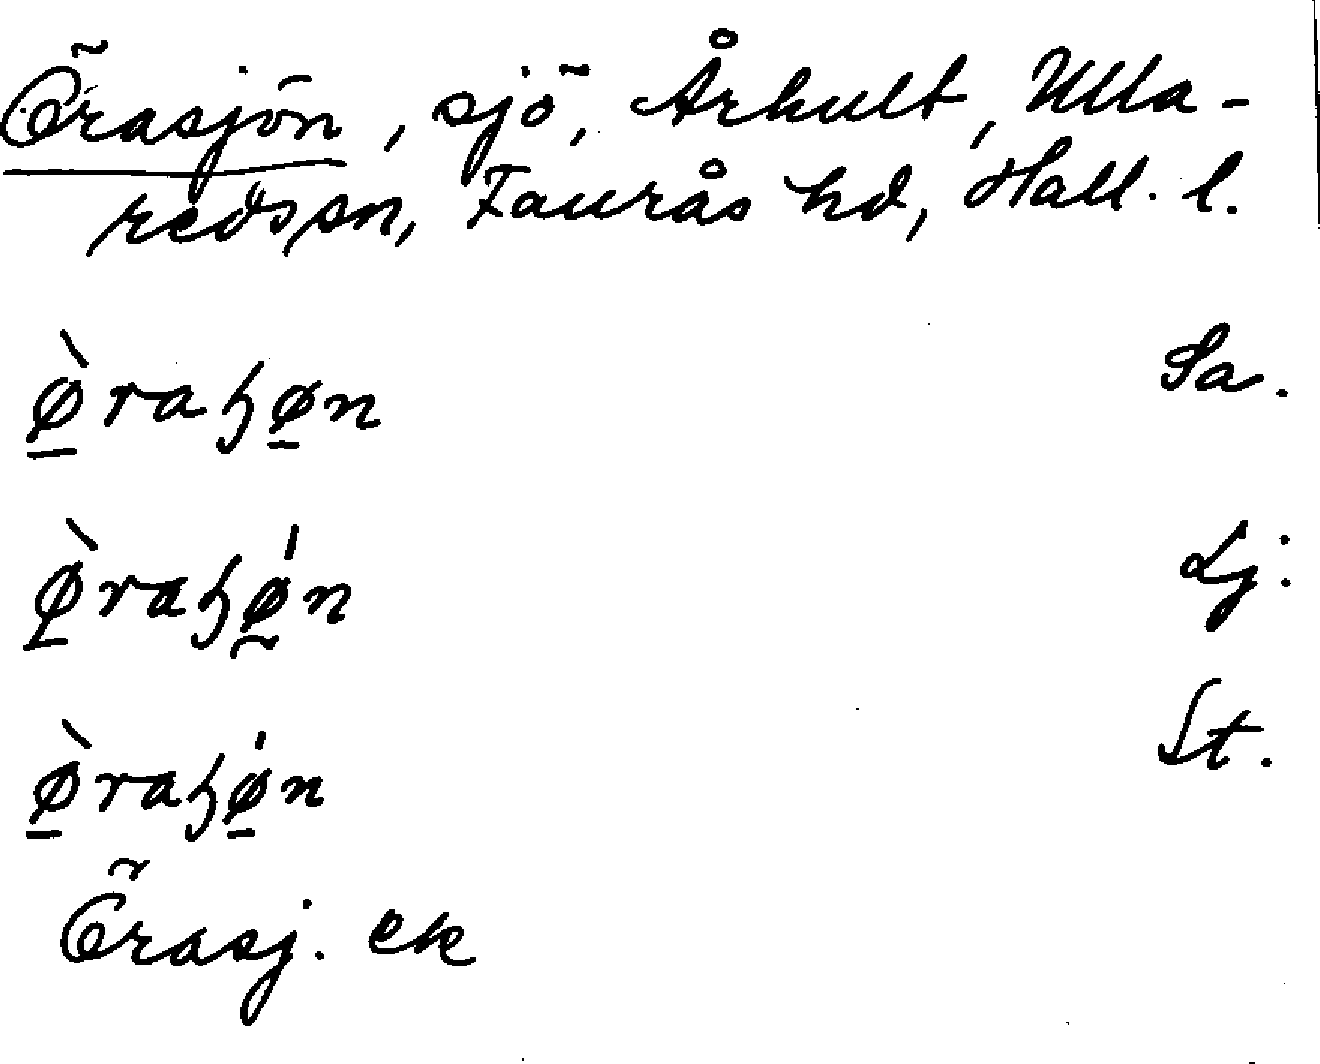 Örasjön, sjö, Århult, Ulla-
reds sn, Faurås hd, Hall. l.
ø̱̀raɧø̱n Sa.
ø̱̀raɧǿ̰n Lj.
ø̱̀raɧǿ̱n St.
Örasj. ek